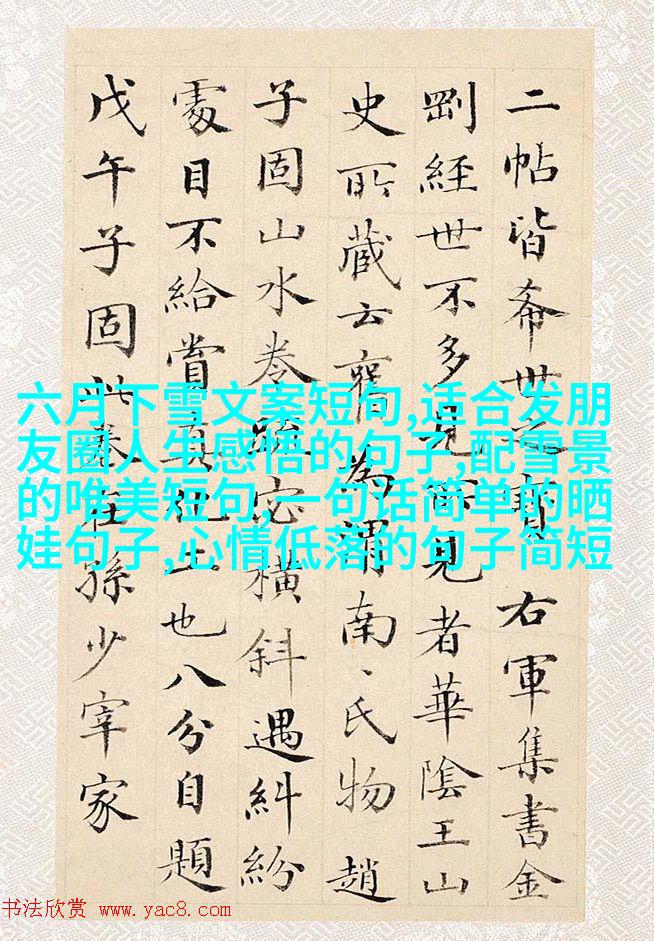 六月下雪文案短句,适合发朋
友圈人生感悟的句子,配雪景
的唯美短句,一句话简单的晒
娃句子,心情低落的句子简短
二帖皆希世之寶右軍集書金
剛經世不多見所見者華陰王山
史所藏云舊為謂南〻氏物趙
子固山水卷疏密橫斜遇糾紛
處目不給賞真上也八分自題
戊午子固此卷在孫少宰家
书法欣赏 www.yac8.com